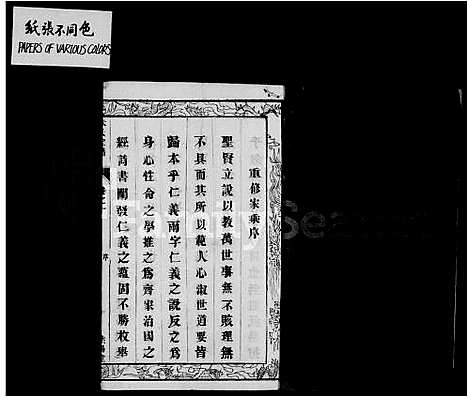 紙張不同色
PAPERS OF VARIOUS COLORS
重修家乘序
聖賢立說以教萬世事無不賅理無
不具而其所以範人心淑世道要皆
歸本乎仁義兩字仁義之說反之爲
身心性命之學推之爲齊家治國之
經詩書闡發仁義之蘊固不勝枚舉
序
FamilySearch